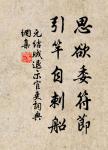 思欲委符節
引竿自刺船
元結賊退示官吏詞典
網集